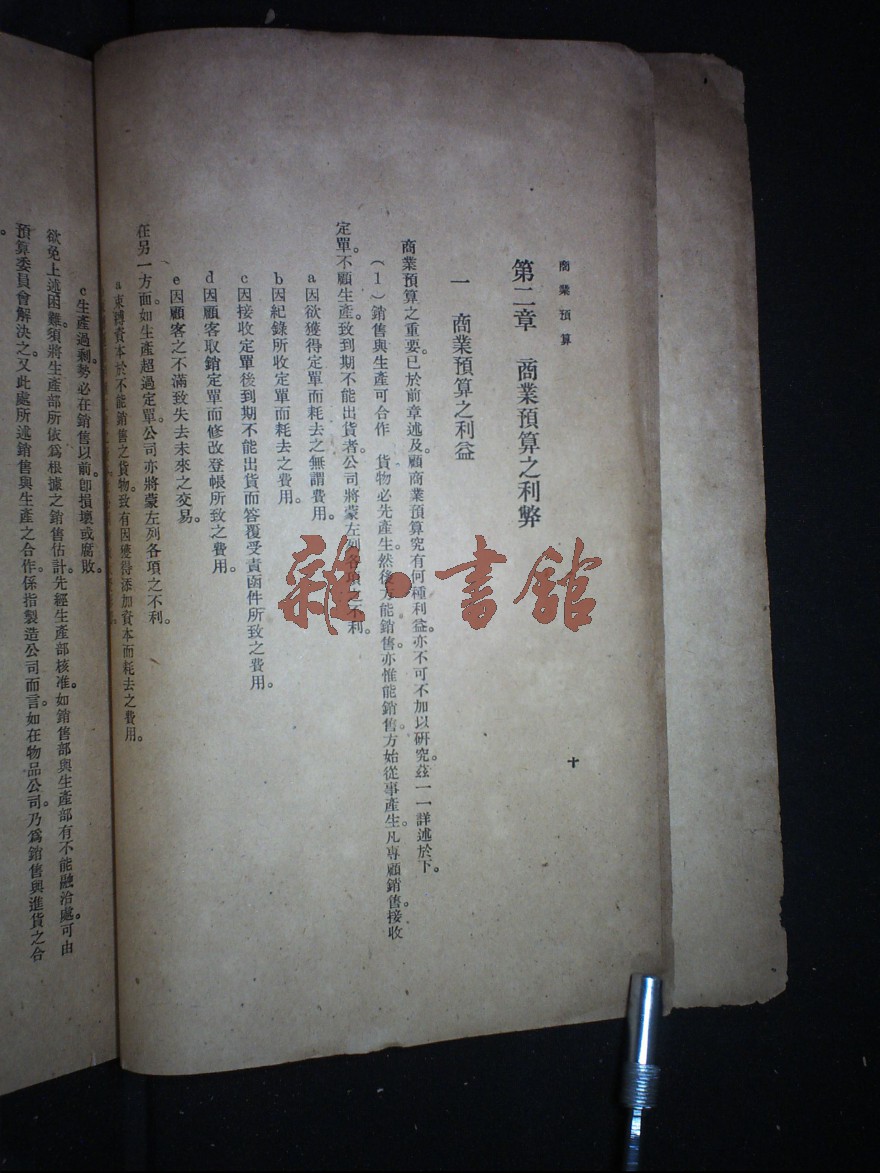 商業預算
十
第二章　商業預算之利弊
一　商業預算之利益
商業預算之重要。已於前章述及。顧商業預算究有何種利益。亦不可不加以研究。茲一一詳述於下。
（1）銷售與生產可合作　貨物必先產生。然後方能銷售。亦惟能銷售。方始從事產生。凡專顧銷售。接收
定單。不顧生產。致到期不能出貨者。公司將蒙左列各項之不利。
a 因欲獲得定單而耗去之無謂費用。
b 因紀錄所收定單而耗去之費用。
c 因接收定單後到期不能出貨而答覆受責函件所致之費用。
d 因顧客取銷定單而修改登帳所致之費用。
e 因顧客之不滿致失去未來之交易。
在另一方面。如生產超過定單。公司亦將蒙左列各項之不利。
a 束縛資本於不能銷售之貨物。致有因獲得添加資本而耗去之費用。
c 生產過剩。勢必在銷售以前。卽損壞或腐敗。
欲免上述困難。須將生產部所依爲根據之銷售估計。先經生產部核准。如銷售部與生產部有不能融洽處。可由
預算委員會解決之。又此處所述銷售與生產之合作。係指製造公司而言。如在物品公司。乃爲銷售與進貨之合
雜·書館